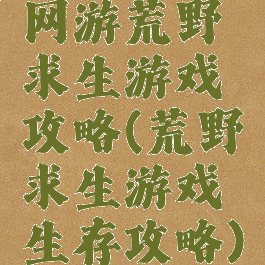 网游荒野
求生游戏
攻略(荒野
求生游戏
生存攻略)